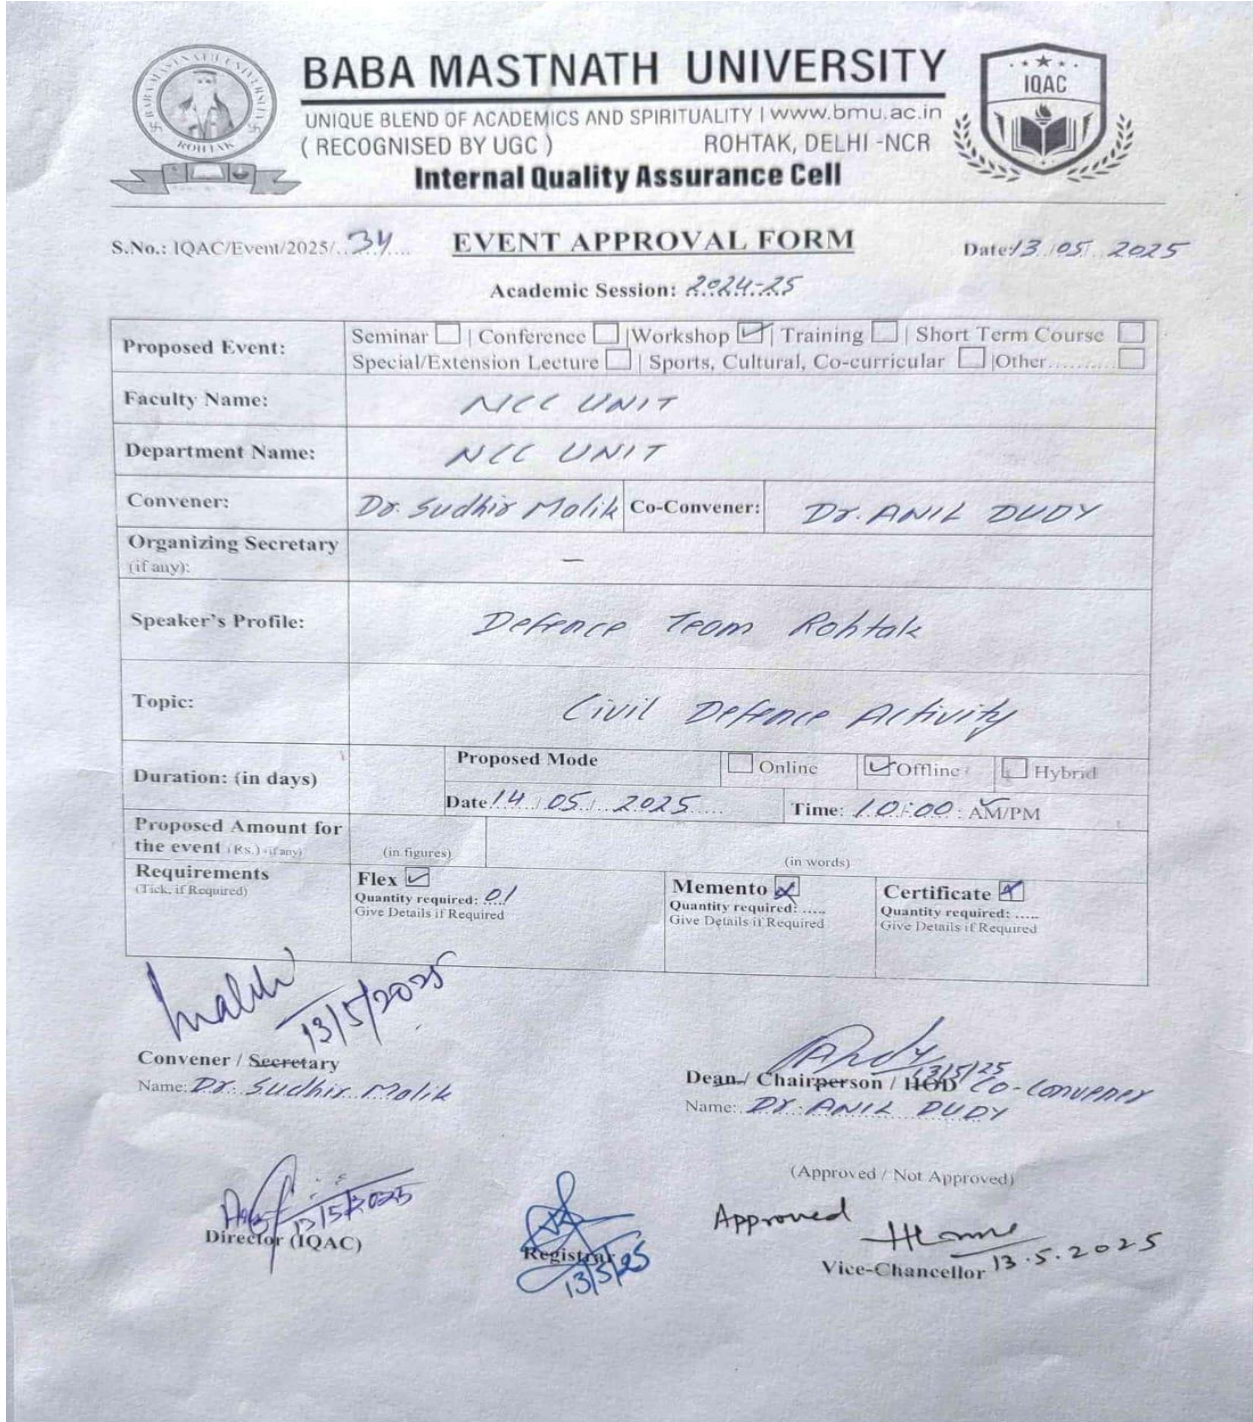 BABA MASTNATH UNIVERSITY
UNIQUE BLEND OF ACADEMICS AND SPIRITUALITY | www.bmu.ac.in
( RECOGNISED BY UGC ) ROHTAK, DELHI -NCR
Internal Quality Assurance Cell
BABA MASTNATH UNIVERSITY
ROHTAK
IQAC
S.No.: IQAC/Event/2025/..34.... EVENT APPROVAL FORM Date: 13.05.2025
Academic Session: 2024-25
Proposed Event: Seminar | Conference | Workshop | Training | Short Term Course
Special/Extension Lecture | Sports, Cultural, Co-curricular | Other...........
Faculty Name: NCC UNIT
Department Name: NCC UNIT
Convener: Dr. Sudhir Malik Co-Convener: Dr. ANIL DUDY
Organizing Secretary
(if any): —
Speaker's Profile: Defence Team Rohtak
Topic: Civil Defence Activity
Duration: (in days) Proposed Mode Online Offline Hybrid
Date 14.05.2025 Time: 10:00 : AM/PM
Proposed Amount for
the event (Rs.) (if any) (in figures) (in words)
Requirements
(Tick, if Required)
Flex
Quantity required: 01
Give Details if Required
Memento
Quantity required: .....
Give Details if Required
Certificate
Quantity required: .....
Give Details if Required
Malik
13/5/2025
Convener / Secretary
Name: Dr. Sudhir Malik
13/5/25
Dean / Chairperson / HOD Co-Convener
Name: Dr. ANIL DUDY
13/5/2025
Director (IQAC)
Registrar
13/5/25
(Approved / Not Approved)
Approved
Vice-Chancellor 13.5.2025